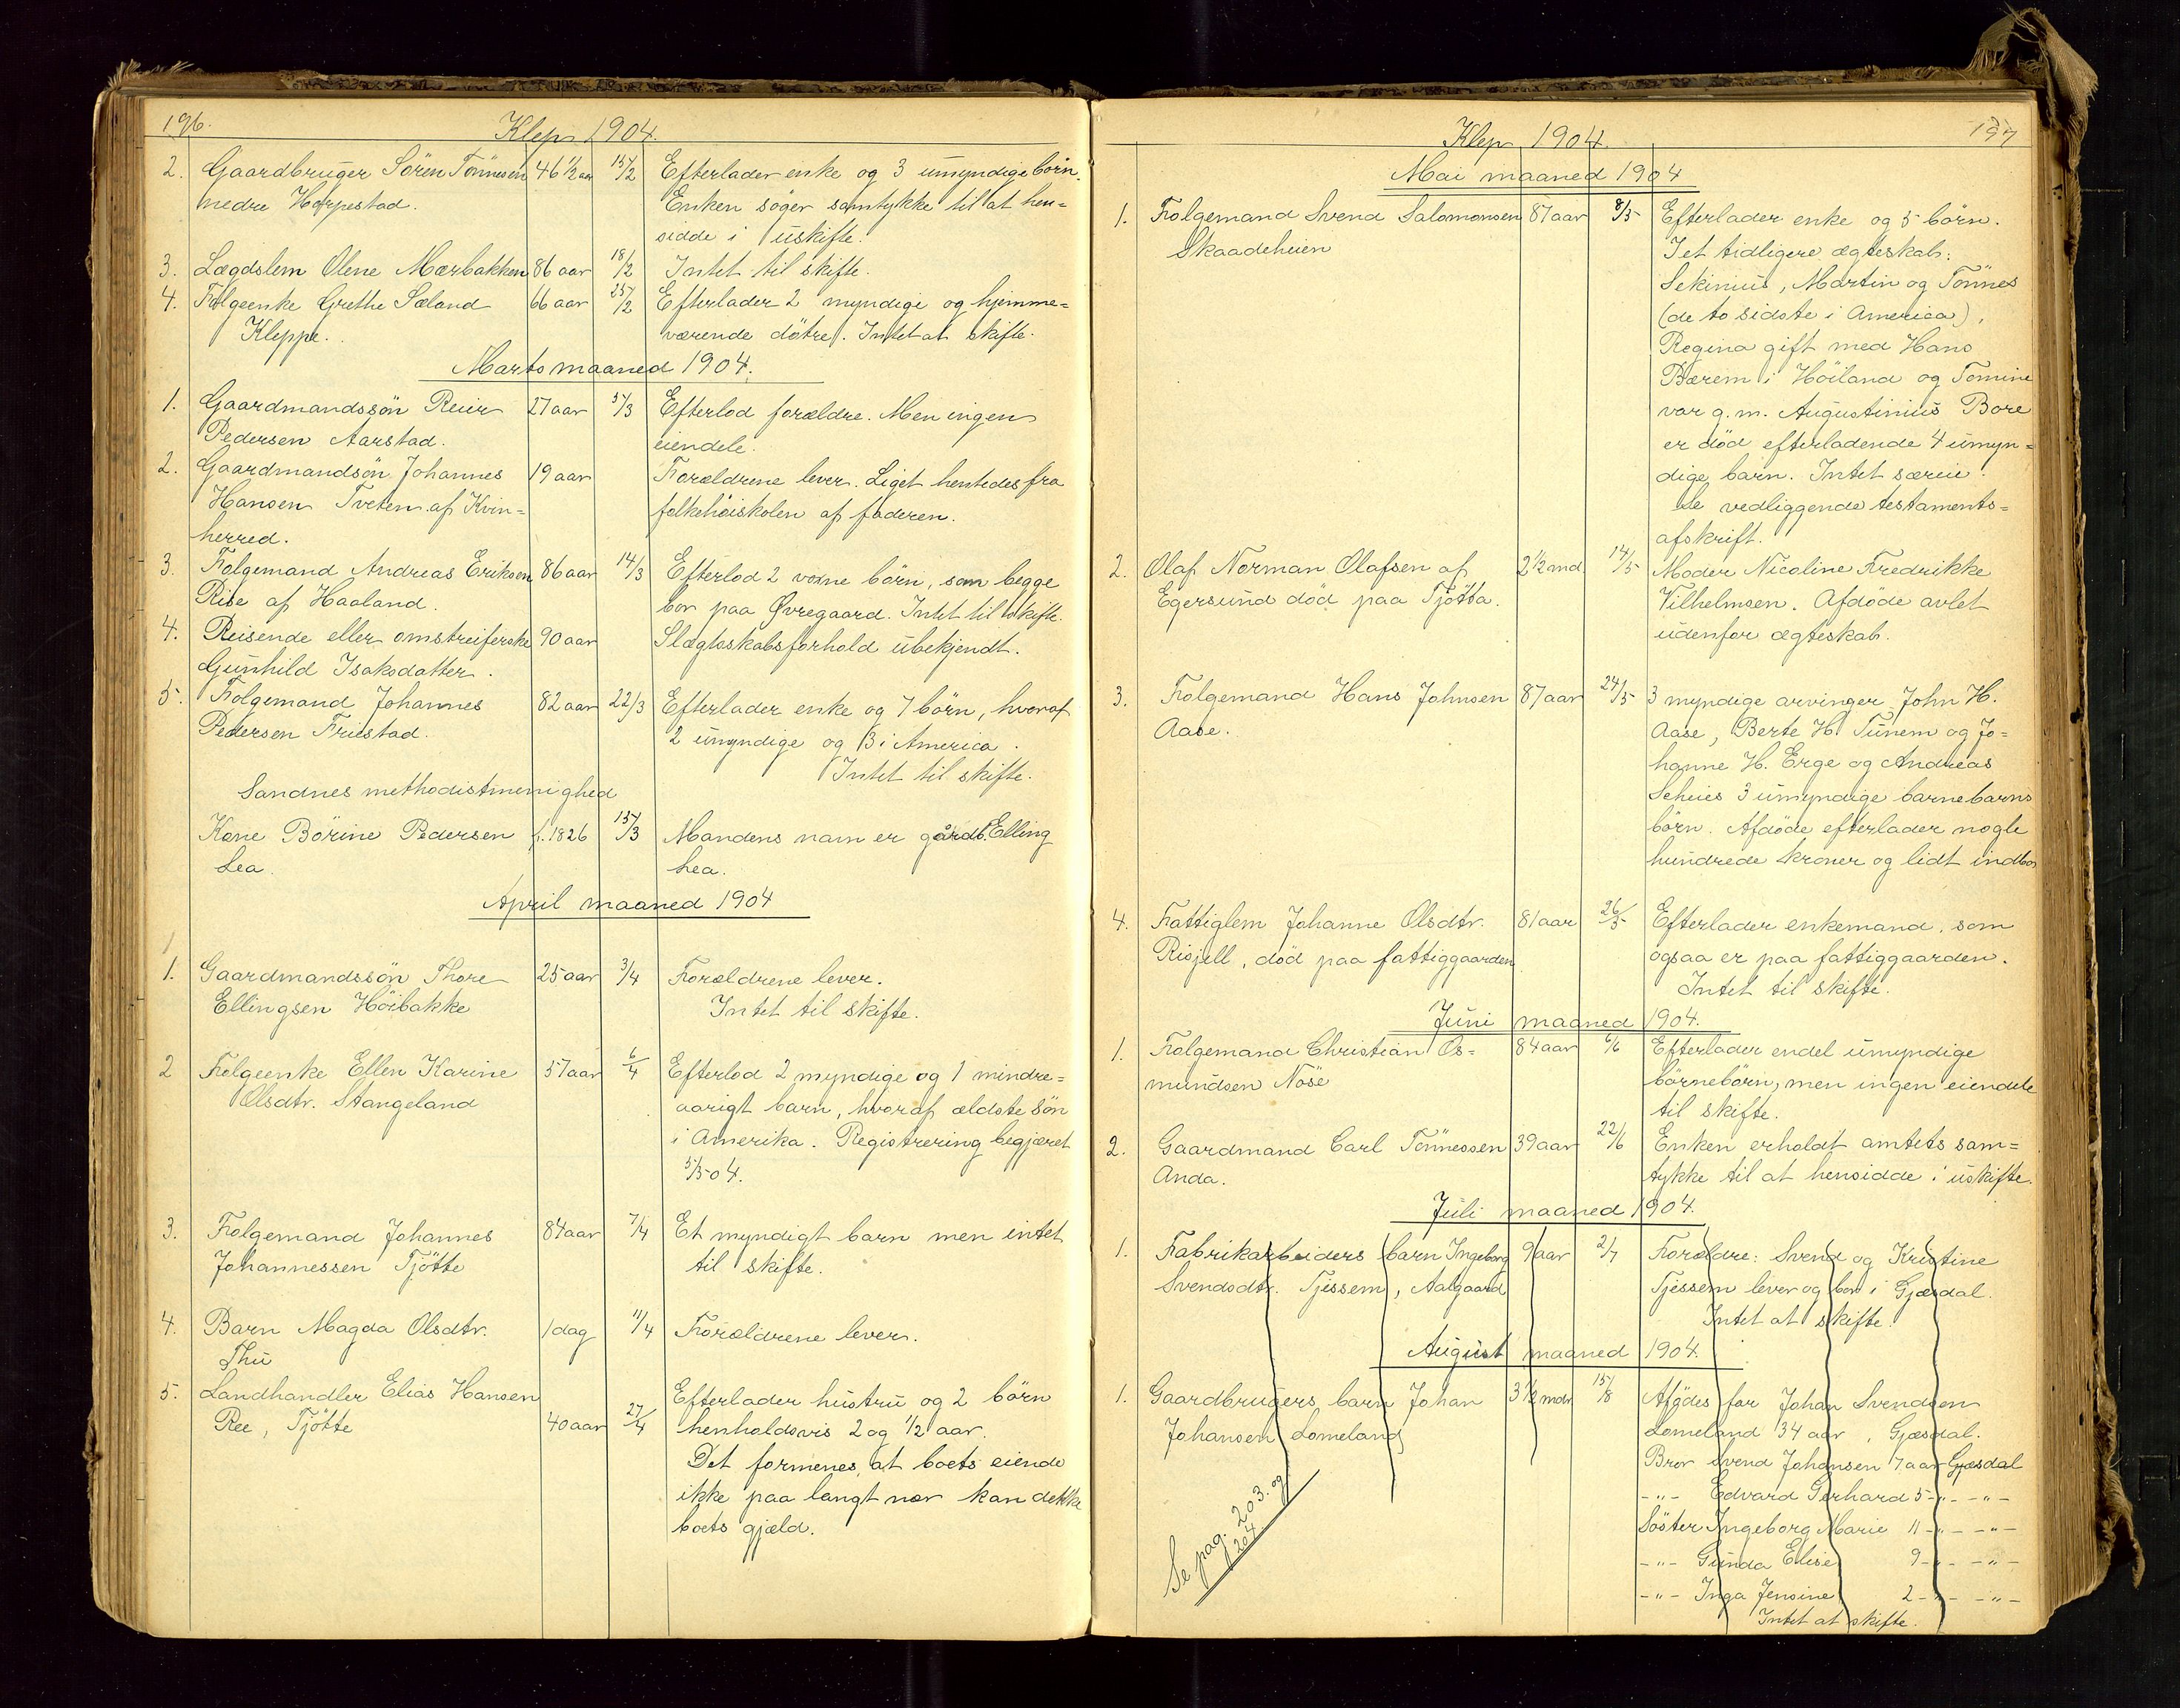 196.
Klep 1904.
2. Gaardbruger Sören Tönnesen 46 1/2 aar 15/2 Efterlader enke og 3 umyndige börn.
nedre Horpestad. Enken söger samtykke til at hen=
sidde i uskifte.
3. Lægdslem Olene Mærbakken 86 aar 18/2 Intet til skifte.
4. Folgeenke Grethe Sæland 66 aar 25/2 Efterlader 2 myndige og hjemme=
Kleppe. værende dötre. Intet at skifte.
Marts maaned 1904.
1. Gaardmandssön Reier 27 aar 5/3 Efterlod forældre. Men ingen
Pedersen Aarstad. eiendele.
2. Gaardmandsön Johannes 19 aar Forældrene lever. Liget hentedes fra
Hansen Tveten af Kvin= folkehöiskolen af faderen.
herred.
3. Folgemand Andreas Eriksen 86 aar 14/3 Efterlod 2 voxne börn, som begge
Rise af Haaland. bor paa Øvregaard. Intet til skifte.
4. Reisende eller omstreiferske 90 aar Slægtskabsforhold ubekjendt.
Gunhild Isaksdatter.
5. Folgemand Johannes 82 aar 22/3 Efterlader enke og 7 börn, hvoraf
Pedersen Friestad. 2 umyndige og 3 i America.
Intet til skifte.
Sandnes methodistmenighed
Kone Börine Pedersen f. 1826 15/3 Mandens navn er gårdb. Elling
Lea. Lea.
April maaned 1904
1. Gaardmandssön Thore 25 aar 3/4 Forældrene lever.
Ellingsen Höibakke Intet til skifte.
2 Folgeenke Ellen Karine 57 aar 6/4 Efterlod 2 myndige og 1 mindre=
Olsdtr. Stangeland aarigt barn, hvoraf ældste sön
i Amerika. Registrering begjæret
5/5-04.
3. Folgemand Johannes 84 aar 7/4 Et myndigt barn men intet
Johannessen Tjötte til skifte.
4. Barn Magda Olsdtr. 1 dag 11/4 Forældrene lever.
Thu
5. Landhandler Elias Hansen Efterlader hustru og 2 börn
Ree, Tjötte 40 aar 27/4 henholdsvis 2 og 1/2 aar.
Det formenes, at boets eiende
ikke paa langt nær kan dekke
boets gjæld.
197
Klep 1904.
Mai maaned 1904
1. Folgemand Svend Salomonsen 87 aar 8/5 Efterlader enke og 5 börn.
Skaadeheien I et tidligere ægteskab:
Sekinius, Martin og Tönnes
(de to sidste i America),
Regina gift med Hans
Bærem i Höiland og Tomine
var g.m. Augustinius Bore
er död efterladende 4 umyn=
dige barn. Intet særeie.
Se vedliggende testaments=
afskrift.
2. Olaf Norman Olafsen af 2 1/2 md. 14/5 Moder Nicoline Fredrikke
Egersund död paa Tjötta. Vilhelmsen. Afdöde avlet
udenfor ægteskab.
3. Folgemand Hans Johnsen 87 aar 24/5 3 myndige arvinger John H.
Aase. Aase, Berte H. Tunem og Jo=
hanne H. Erge og Andreas
Seheies 3 umyndige barnebarns
börn. Afdöde efterlader nogle
hundrede kroner og lidt indbo
4. Fattiglem Johanne Olsdtr. 81 aar 26/5 Efterlader enkemand, som
Risjell, död paa fattiggaarden ogsaa er paa fattiggaarden.
Intet til skifte.
Juni maaned 1904.
1. Folgemand Christian Os= 84 aar 6/6 Efterlader endel umyndige
mundsen Nöse börnebörn, men ingen eiendele
til skifte.
2. Gaardmand Carl Tönnessen 39 aar 22/6 Enken erholdt amtets sam=
Anda. tykke til at hensidde i uskifte.
Juli maaned 1904.
1. Fabrikarbeiders barn Ingeborg 9 aar 2/7 Forældre: Svend og Kristine
Svendsdtr. Tjessem, Aalgaard Tjessem lever og bor i Gjæsdal.
Intet at skifte.
August maaned 1904.
1. Gaardbrugers barn Johan 3 1/2 mdr 15/8 Afödes far Johan Svendsen
Johansen Lomeland Lomeland 34 aar, Gjæsdal.
Bror Svend Johansen 7 aar Gjæsdal
-"- Edvard Gerhard 5 -"- -"-
Söster Ingeborg Marie 11 -"- -"-
-"- Gunda Elise 9 -"- -"-
-"- Inga Jensine 2 -"- -"-
Intet at skifte.
Se pag. 203. og
204.